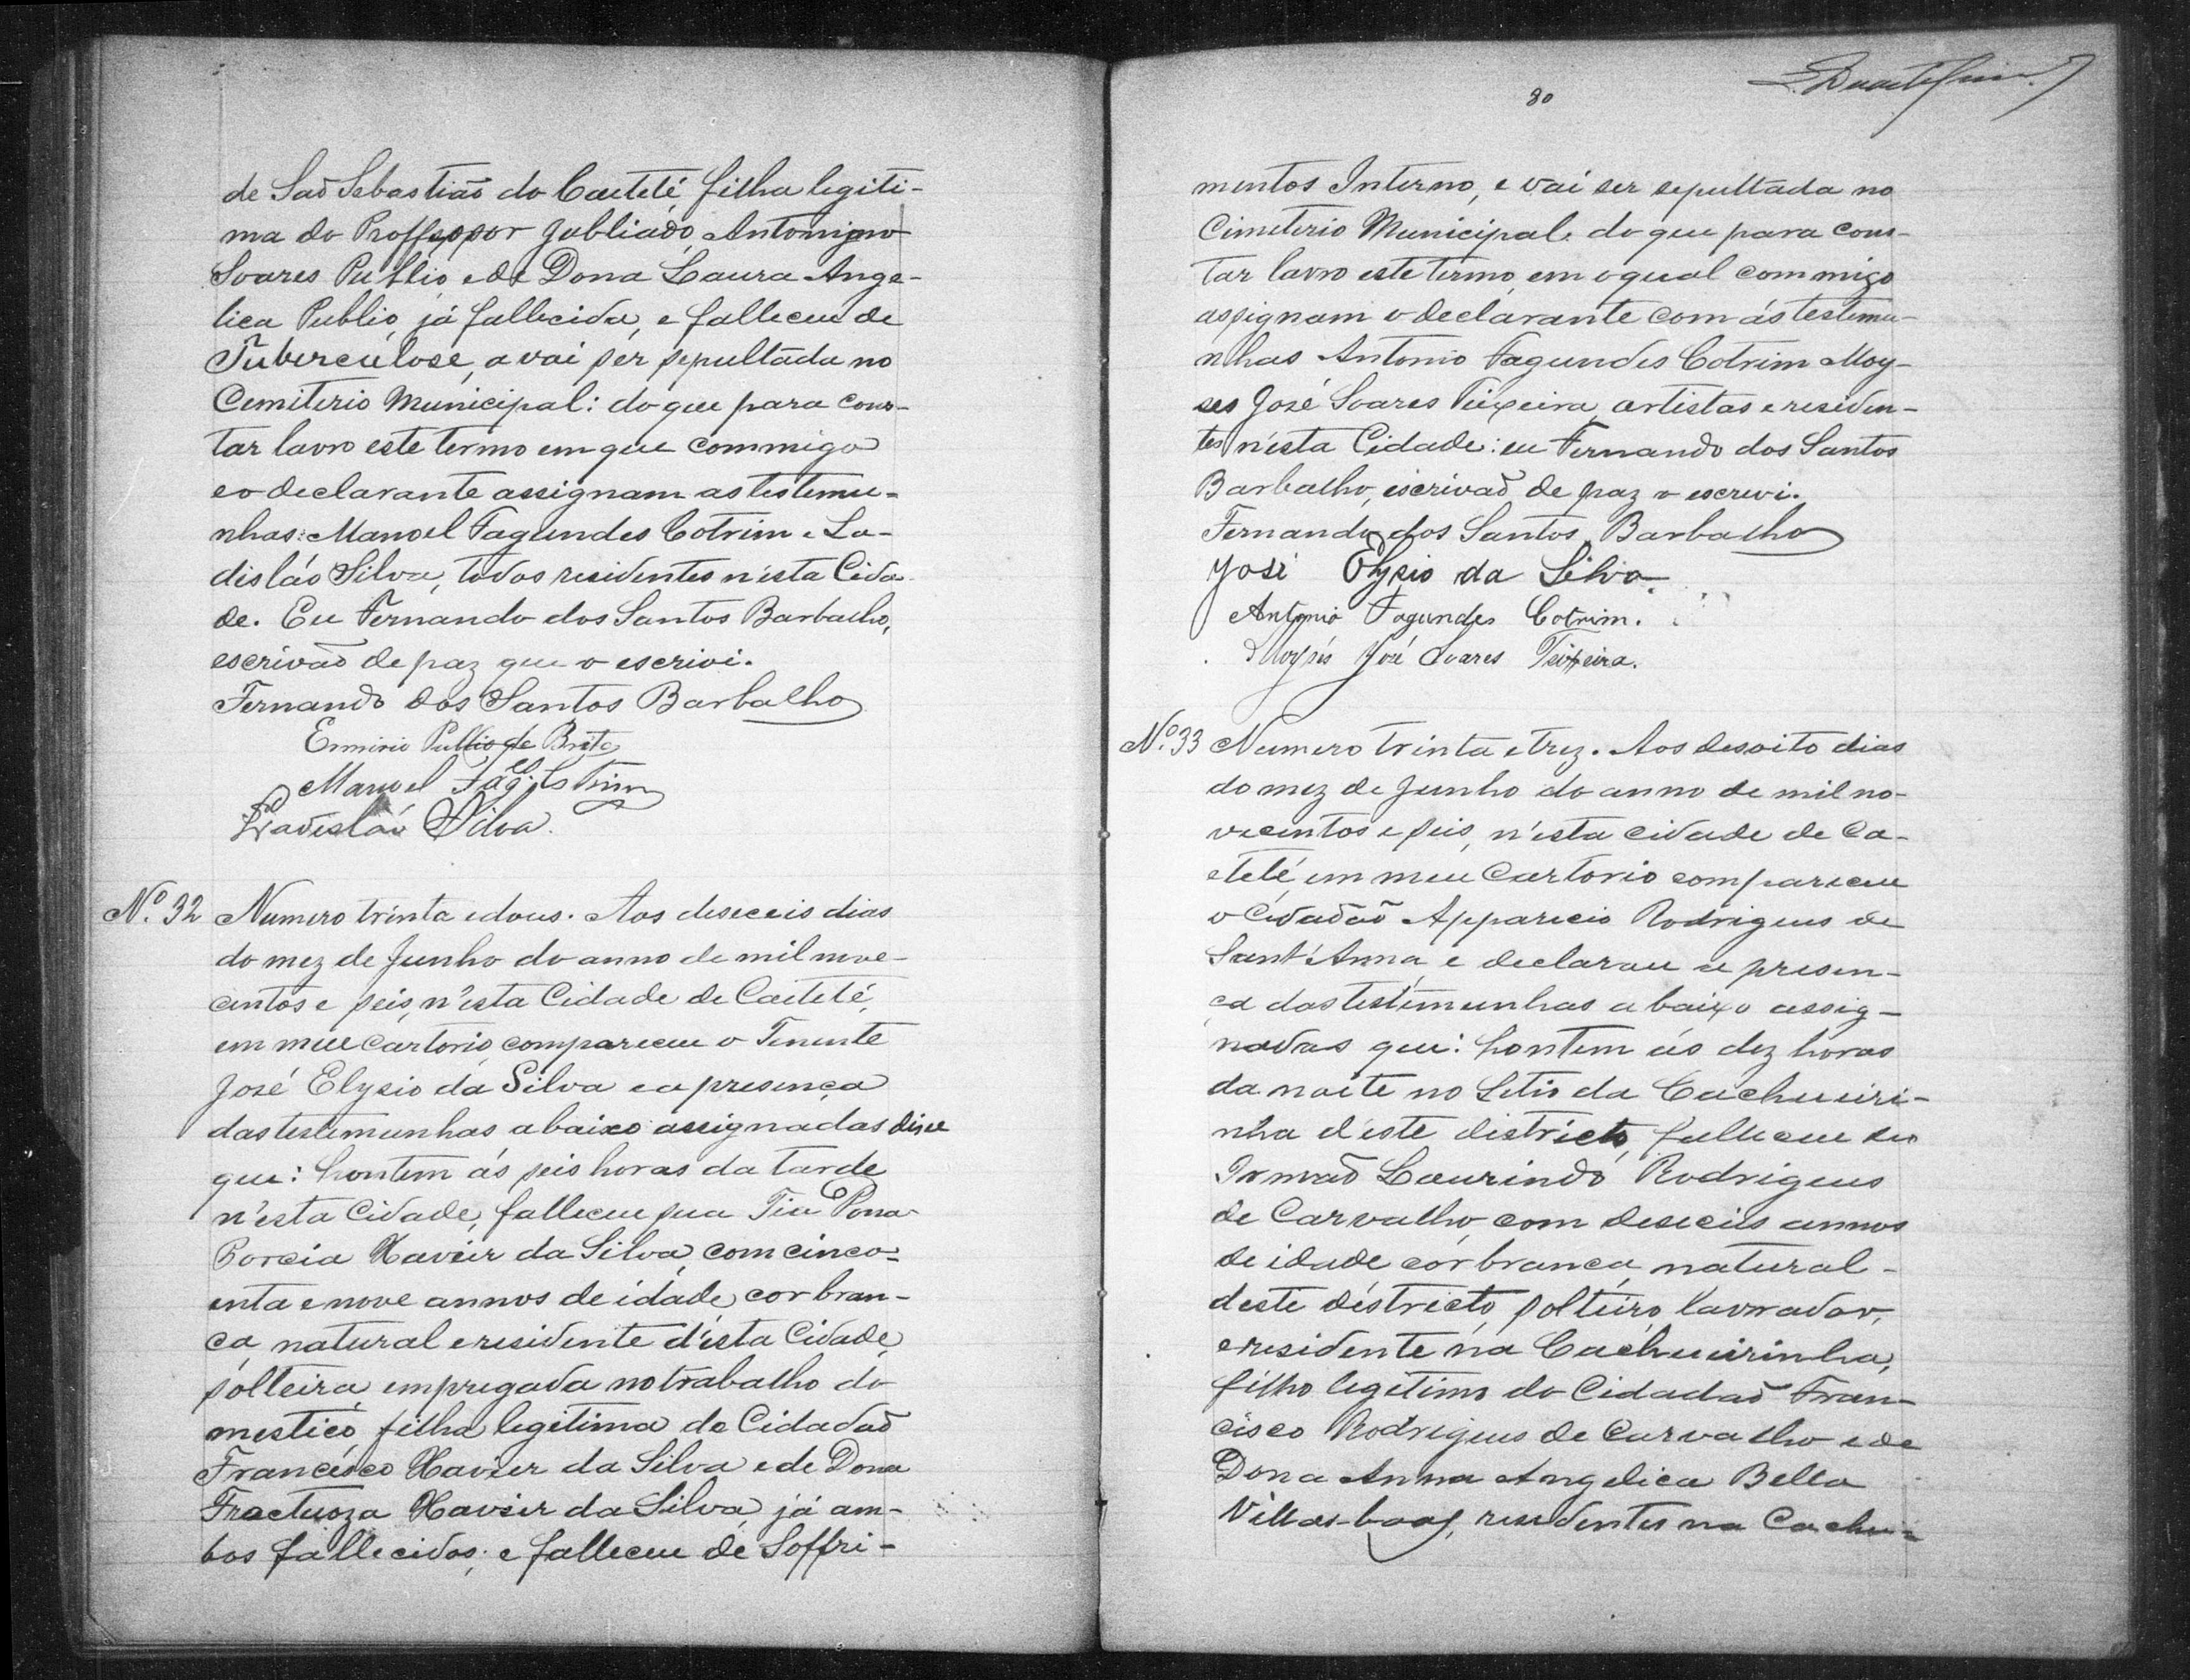 de Saõ Sebastiaõ do Caeteté, filha legiti-
ma do Proffessor Jubliado, Antonino
Soares Publio, e de Dona Laura Ange-
lica Publio, já fallecida, e falleceu de
Tuberculose, e vai ser sepultada no
Cemiterio Municipal: do que para cons-
tar lavro este termo em que commigo
e o declarante assignam as testemu-
nhas: Manoel Fagundes Cotrim e La-
disláo Silva, todos residentes n'esta Cida-
de. Eu Fernando dos Santos Barbalho,
escrivaõ de paz que o escrivi.
Fernando dos Santos Barbalho
Erminio Publio de Brito
Manoel Fag.es Cotrim
Ladisláo Silva.
Nº. 32 Numero trinta e dous. Aos deseceis dias
do mez de Junho do anno de mil nove-
centos e seis, n'esta Cidade de Caeteté,
em meu Cartorio, compareceu o Tenente
José Elysio da Silva e a presença
das testemunhas abaixo assignadas disse
que: hontem ás seis horas da tarde
n'esta Cidade, falleceu sua Tia Dona
Porcia Xavier da Silva, com cinco-
enta e nove annos de idade, cor bran-
ca, natural e residente d'esta Cidade,
solteira, empregada no trabalho do-
mestico, filha legitima do Cidadaõ
Francisco Xavier da Silva e de Dona
Fractuoza Xavier da Silva, já am-
bos fallecidos; e falleceu de Soffri-
80
mentos Interno, e vai ser sepultada no
Cimeterio Municipal: do que para cons-
tar lavro este termo, em o qual commigo
assignam o declarante com ás testemu-
nhas Antonio Fagundes Cotrim Moy-
ses José Soares Teixeira, artistas e residen-
tes n'esta Cidade: eu Fernando dos Santos
Barbalho, escrivaõ de paz o escrevi.
Fernando dos Santos Barbalho
José Elysio da Silva.
Antonio Fagundes Cotrim.
Moysés José Soares Teixeira.
Nº. 33 Numero trinta e trez. Aos desoito dias
do mez de Junho do anno de mil no-
vecentos e seis, n'esta cidade de Ca-
eteté, em meu Cartorio compareceu
o Cidadaõ Apparecio Rodrigues de
Sant'Anna, e declarou a presen-
ça das testemunhas abaixo assig-
nadas que: hontem ás dez horas
da noite no Sitio da Cachueiri-
nha d'este districto, falleceu seu
Irmaõ Laurindo Rodrigues
de Carvalho, com deseceis annos
de idade cor branca, natural
deste districto, solteiro, lavrador,
e residente na Cachueirinha,
filho legitimo do Cidadaõ Fran-
cisco Rodrigues de Carvalho e de
Dona Anna Angelica Bella
Villas-boas, residentes na Cachu-